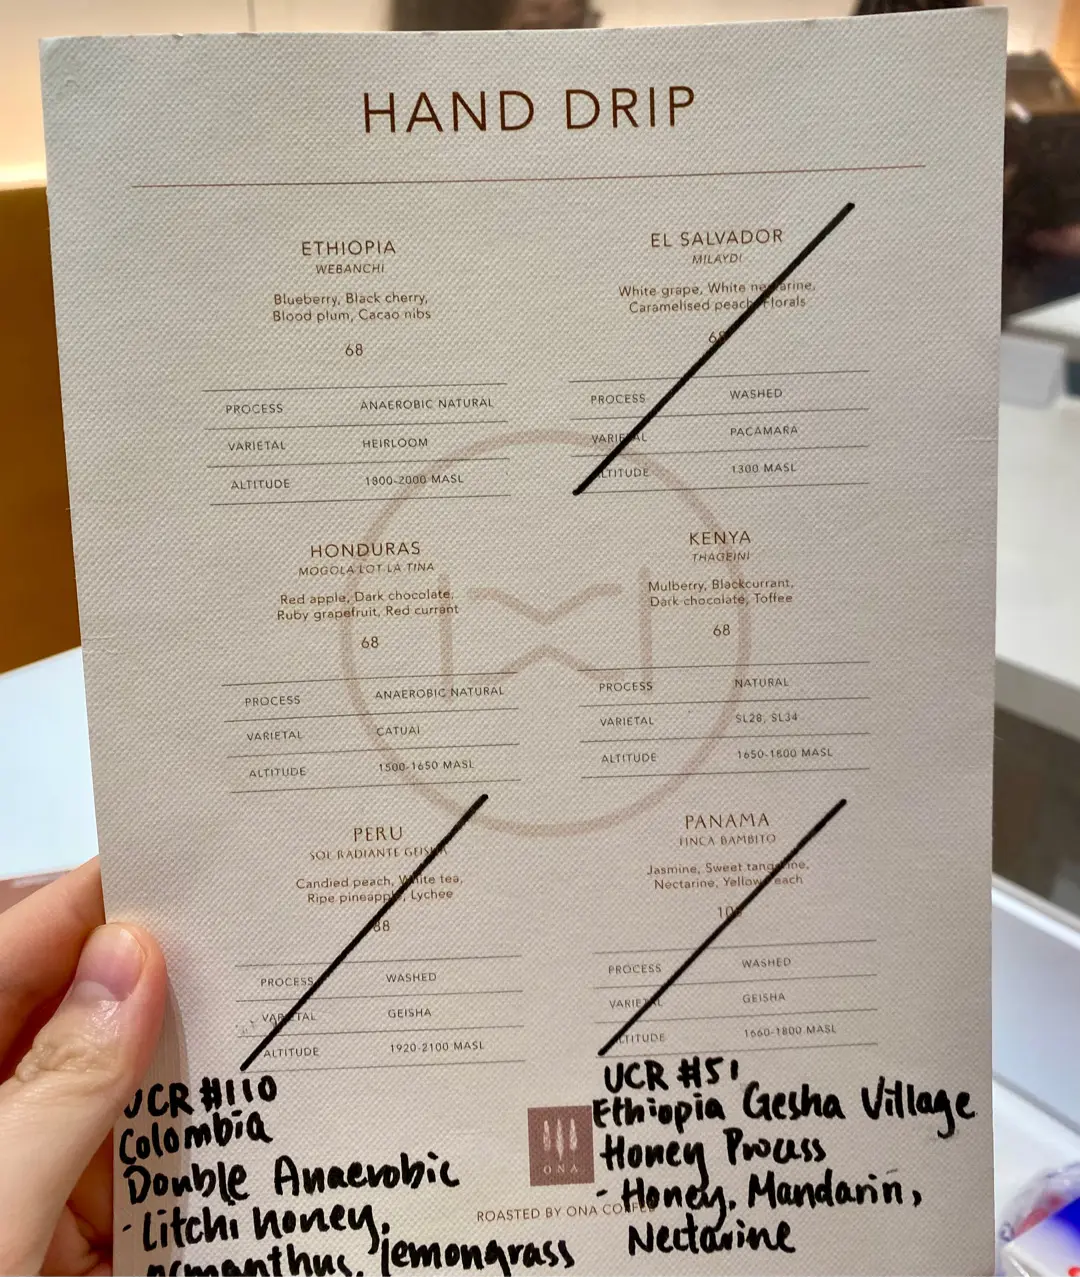 HAND DRIP
ETHIOPIA
WEBANCHI
Blueberry, Black cherry,
Blood plum, Cacao nibs
68
PROCESS ANAEROBIC NATURAL
VARIETAL HEIRLOOM
ALTITUDE 1800-2000 MASL
EL SALVADOR
MILAYDI
White grape, White nectarine,
Caramelised peach, Florals
68
PROCESS WASHED
VARIETAL PACAMARA
ALTITUDE 1300 MASL
HONDURAS
MOGOLA LOT LA TINA
Red apple, Dark chocolate,
Ruby grapefruit, Red currant
68
PROCESS ANAEROBIC NATURAL
VARIETAL CATUAI
ALTITUDE 1500-1650 MASL
KENYA
THAGEINI
Mulberry, Blackcurrant,
Dark chocolate, Toffee
68
PROCESS NATURAL
VARIETAL SL28, SL34
ALTITUDE 1650-1800 MASL
PERU
SOL RADIANTE GEISHA
Candied peach, White tea,
Ripe pineapple, Lychee
88
PROCESS WASHED
VARIETAL GEISHA
ALTITUDE 1920-2100 MASL
PANAMA
FINCA BAMBITO
Jasmine, Sweet tangerine,
Nectarine, Yellow peach
PROCESS WASHED
VARIETAL GEISHA
ALTITUDE 1660-1800 MASL
UCR #110
Colombia
Double Anaerobic
- Litchi honey,
osmanthus, lemongrass
UCR #51
Ethiopia Gesha Village
Honey Process
- Honey, Mandarin,
Nectarine
ONA
ROASTED BY ONA COFFEE